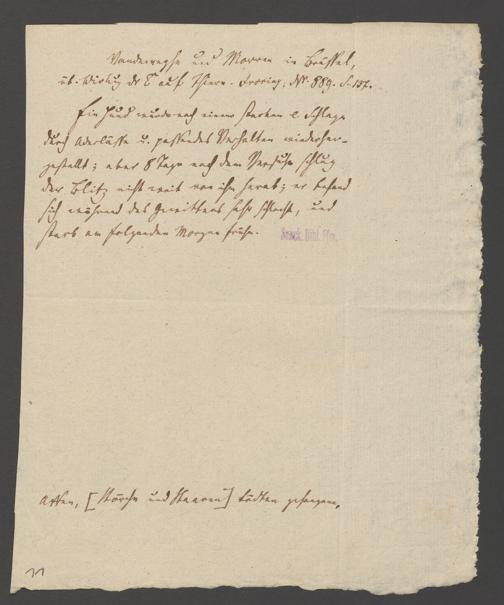 Vanderveghe und Morren in Brüssel,
üb. Wirkung der E auf Thiere. Froriep, No 889. S. 137.
Ein Hund wurde nach einem starken e Schlage
durch Aderlässe u. passendes Verhalten wiederher-
gestellt; aber 8 Tage nach dem Versuche schlug
der Blitz nicht weit von ihm herab; er befand
sich während des Gewitters sehr schlecht, und
starb am folgenden Morgen früh.
Senck. Bibl. Ffm.
Affen, [Störche und Staaren] tödten
11